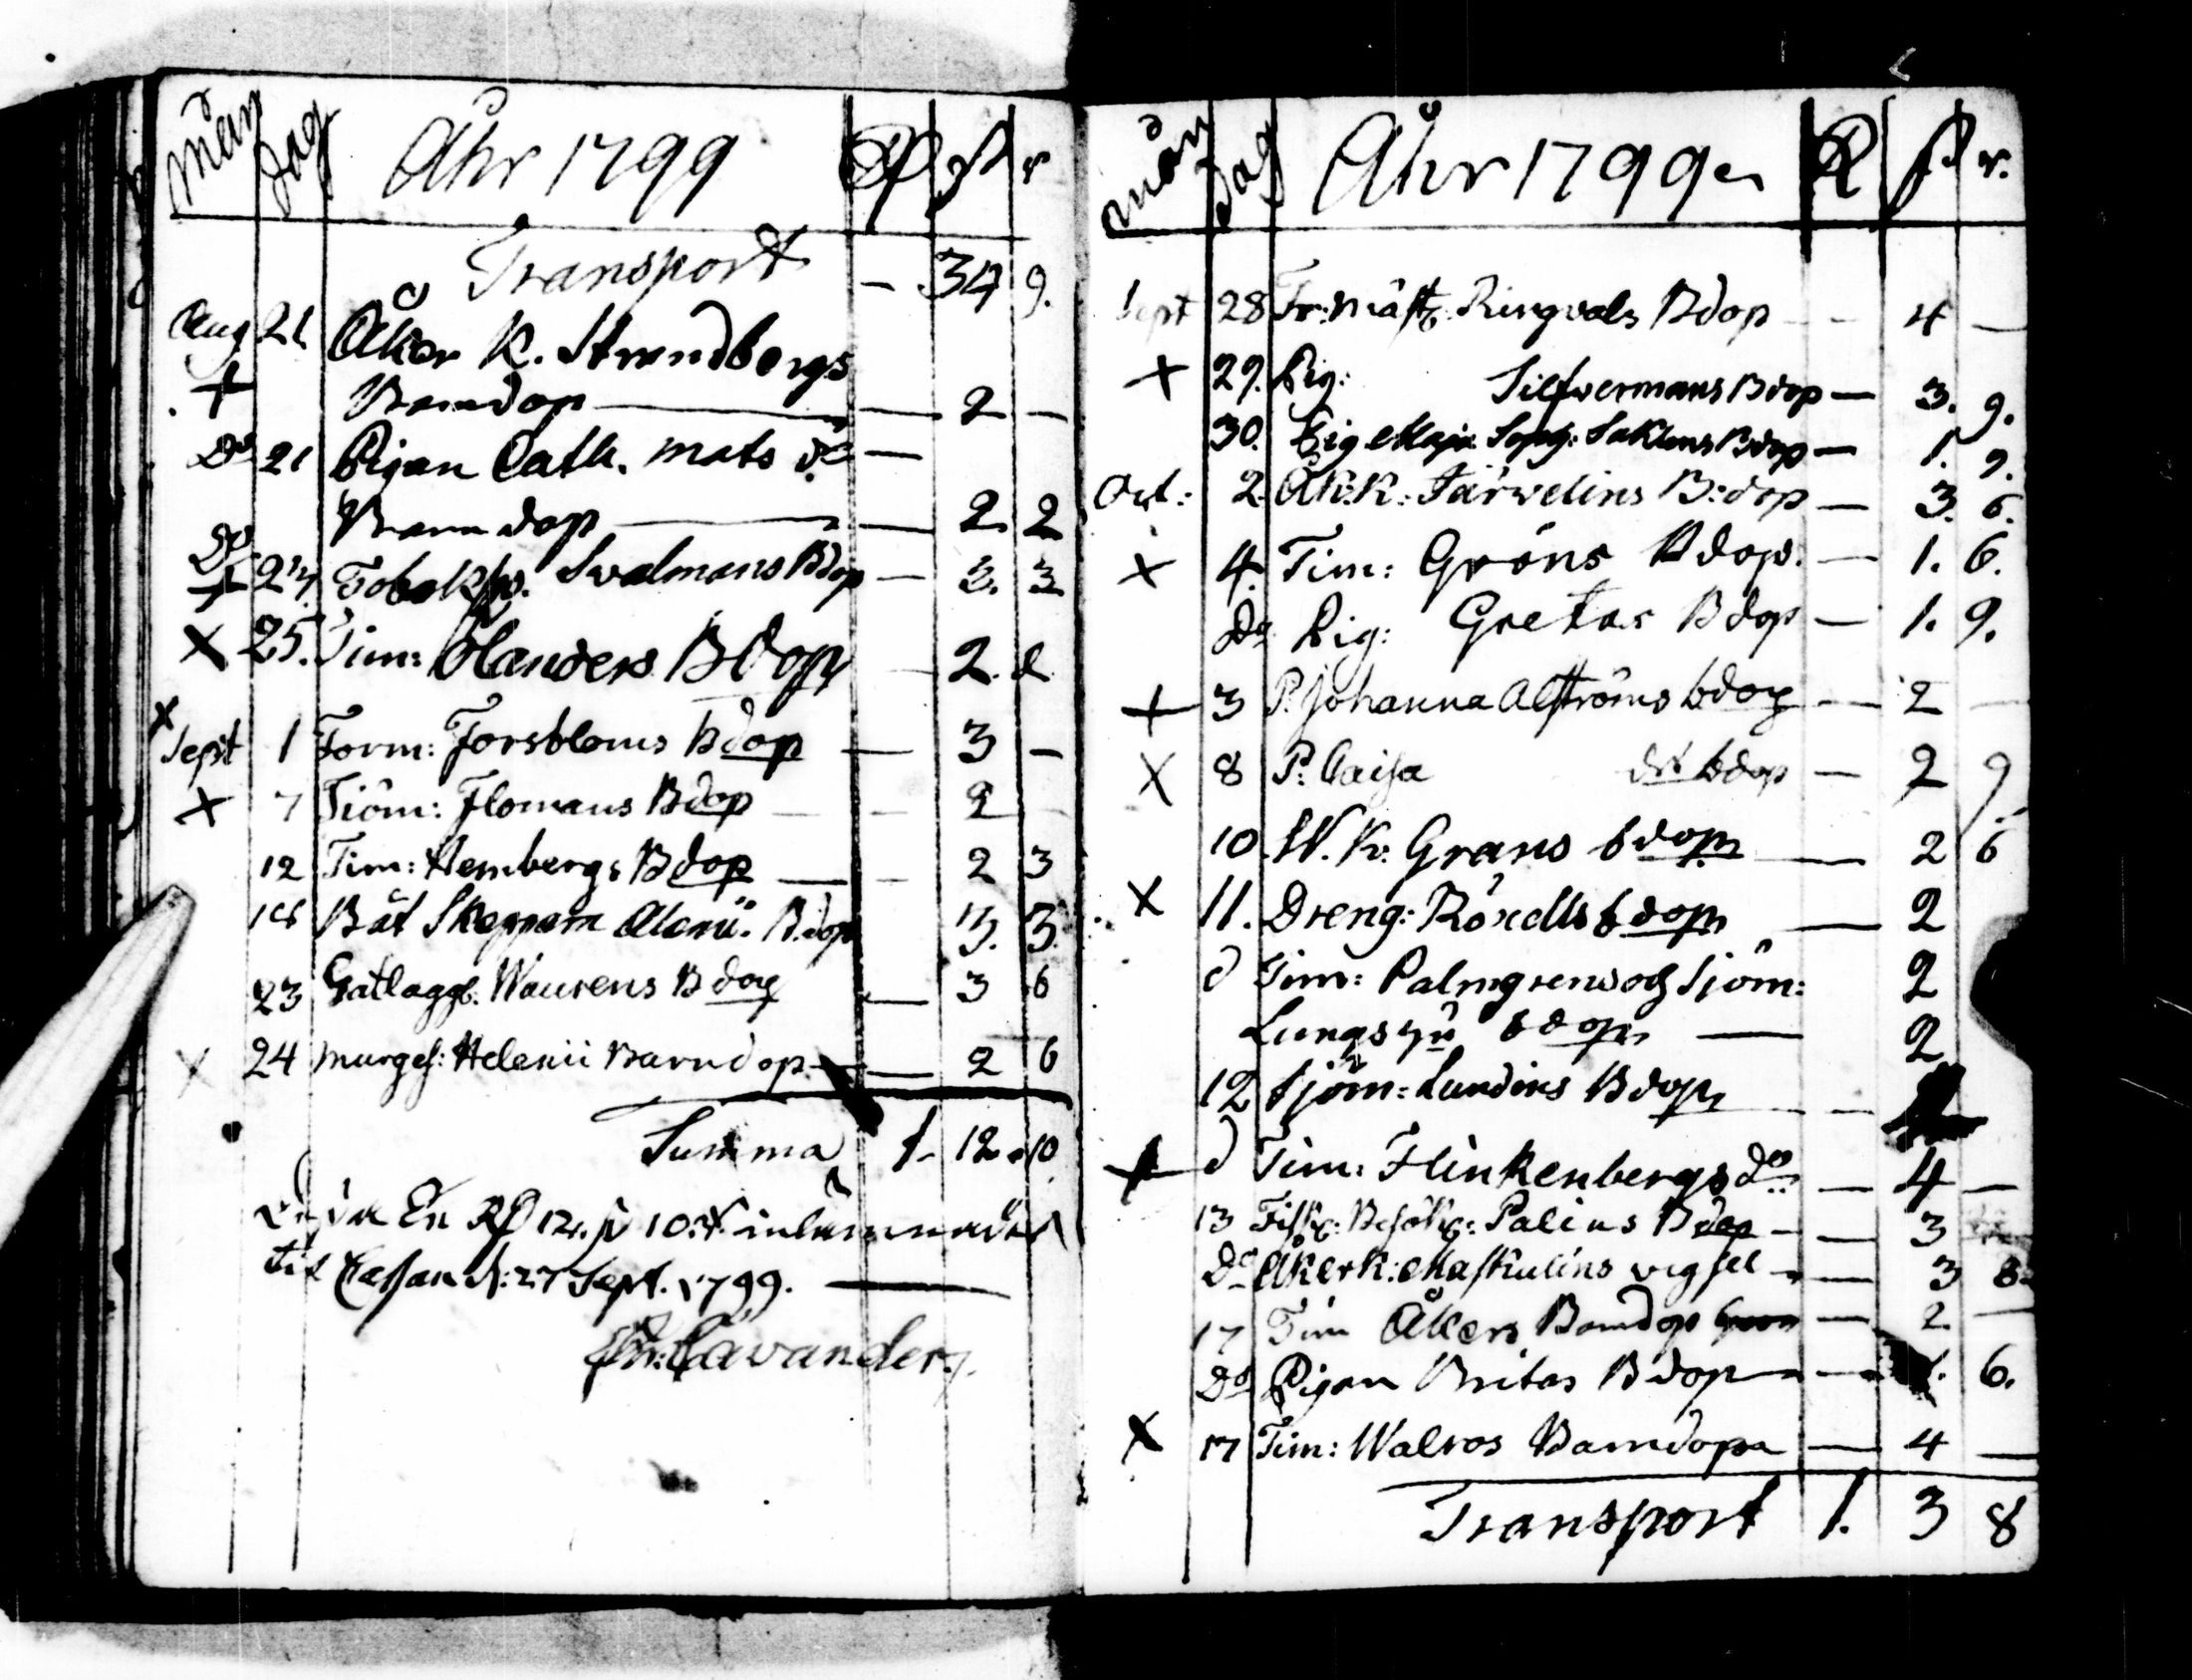 Mån Dag Åhr 1799 Rd ß r
Transport — 34 9.
Aug 21 Åker K. Strandbergs
+ Barndop — 2 —
Do 21 Pigan Cath. Mats do —
Barndop — 2 2
Do + 24 Tobaksp. Svalmans Bdop — 3. 3
X 25. Tim: Olanders Bdop — 2. 2
x Sept 1 Torm: Forsbloms Bdop — 3 —
X 7 Tiöm: Flomans Bdop — 2
12 Tim: Hembergs Bdop — 2 3
18 Båt Skeppare Alenii. B.dop 3. 3.
23 Gatlägg. Waurens Bdop — 3 6
X 24 Murges: Helenii Barndop — 2 6
Summa 1. 12. 10
En Rd 12. ß 10. r inlämnade
til Cassan d: 27 Sept. 1799.
Cavander.
Mån Dag Åhr 1799 R ß r.
Sept 28 Tr: mäst. Ringvals Bdop — 4 —
+ 29. Pig: Silfwermans Bdop — 3. 9.
30. Pig Maja Soph: Saklens Bdop — 1. 9.
Oct: 2. Åk: K: Färwelins B: dop — 3. 6.
X 4. Tim: Gröns Bdop. — 1. 6.
Do Pig: Gretas Bdop — 1. 9.
+ 3 P. Johanna Alströms bdop — 2 —
X 8 P: Caisa dr bdop — 2 9
10. W. K: Grans bdop — 2 6
X 11. Dreng: Röxells bdop — 2
d Tim: Palmgrens och Sjöm: 2
Lungsyn bdop — 2
12 Sjöm: Lundins Bdop —
+ d Tim: Flinkenbergs do — 4 —
13 Palins Bdop — 3
Do Åkerk: Maskulins vigsel — 3 8.
17 Tim Åkers Barndop — 2 —
Do Pigan Britas Bdop — 1. 6.
X 17 Tim: Walros Barndop — 4 —
Transport 1. 3 8